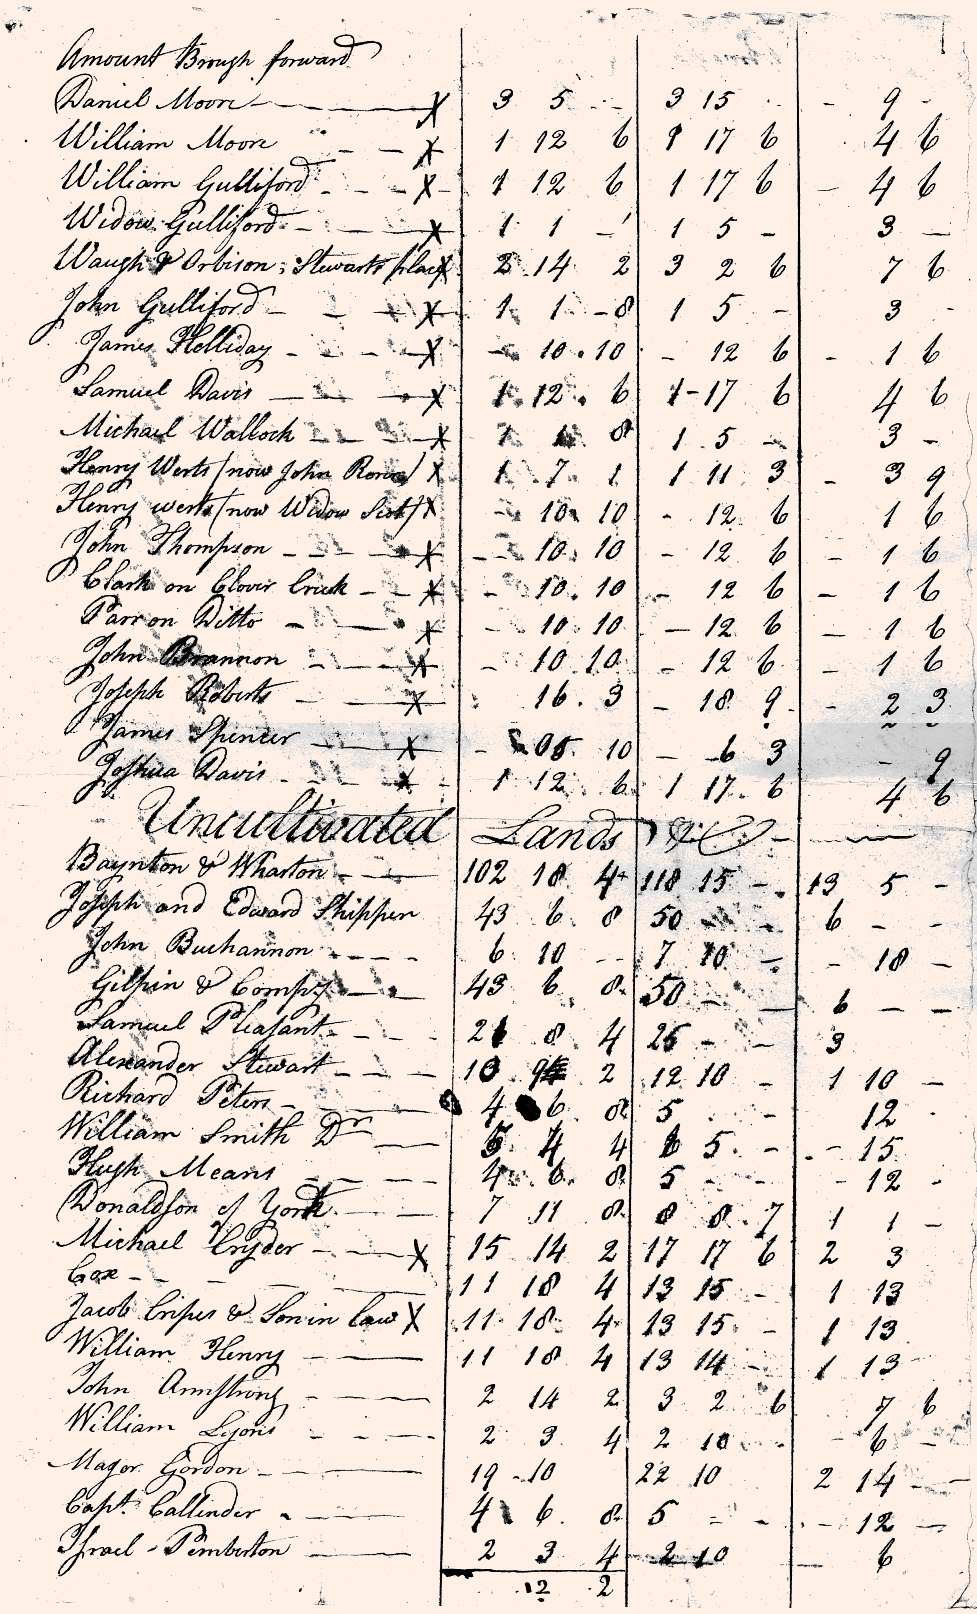 Amount Brough forward
Daniel Moore - X 3 5 - - 3 15 - - 9 -
William Moore - - X 1 12 6 1 17 6 4 6
William Gulliford - - - X 1 12 6 1 17 6 - 4 6
Widow Gulliford - - X 1 1 - 1 5 - 3 -
Waugh & Orbison, Stewarts place X 2 14 2 3 2 6 7 6
John Gulliford - - - X 1 1 - 8 1 5 - 3 -
James Holliday - - - X - 10 10 - 12 6 - 1 6
Samuel Davis - - - X 1 12 6 1 - 17 6 4 6
Michael Wallock - - X 1 1 8 1 5 - 3 -
Henry Werts (now John Rorer) X 1 7 1 1 11 3 - 3 9
Henry werts (now Widow Scot) X - 10 10 - 12 6 1 6
John Thompson - - - X - 10 10 - 12 6 - 1 6
Clark on Clover Creek - - X - 10 10 - 12 6 - 1 6
Parr on Ditto - - X - 10 10 - 12 6 - 1 6
John Brannon - - X - 10 10 - 12 6 - 1 6
Joseph Roberts - - X 16 3 - 18 9 - 2 3
James Spencer - X - 05 10 - 6 3 - 9
Joshua Davis - - X - 1 12 6 1 17 6 4 6
Uncultivated Lands &c -
Baynton & Wharton - - 102 18 4 118 15 - 13 5 -
Joseph and Edward Shippen 43 6 8 50 - - 6 - -
John Buchannon - - - 6 10 - - 7 10 - - 18 -
Gilpin & Compy - - 43 6 8 50 - - 6 - -
Samuel Pleasant - - - 21 8 4 25 - - 3
Alexander Stewart - - - 10 2 12 10 - 1 10 -
Richard Peters - 4 6 8 5 - 12 -
William Smith Dr - 5 4 4 6 5 - - 15
Hugh Means - - - 4 6 8 5 - - - 12 -
Donaldson of York - - 7 11 8 8 8 7 1 1 -
Michael Cryder - - X 15 14 2 17 17 6 2 3
Cox - - - - 11 18 4 13 15 - 1 13
Jacob Cripes & Son in law X 11 18 4 13 15 - 1 13
William Henry - - 11 18 4 13 14 - 1 13 -
John Armstrong - - 2 14 2 3 2 6 7 6
William Lyons - - - 2 3 4 2 10 - - 6 -
Major Gordon - - 19 - 10 22 10 2 14 - -
Capt. Callender - - 4 6 8 5 - - - 12 -
Israel - Pemberton - 2 3 4 2 10 - 6
12 2